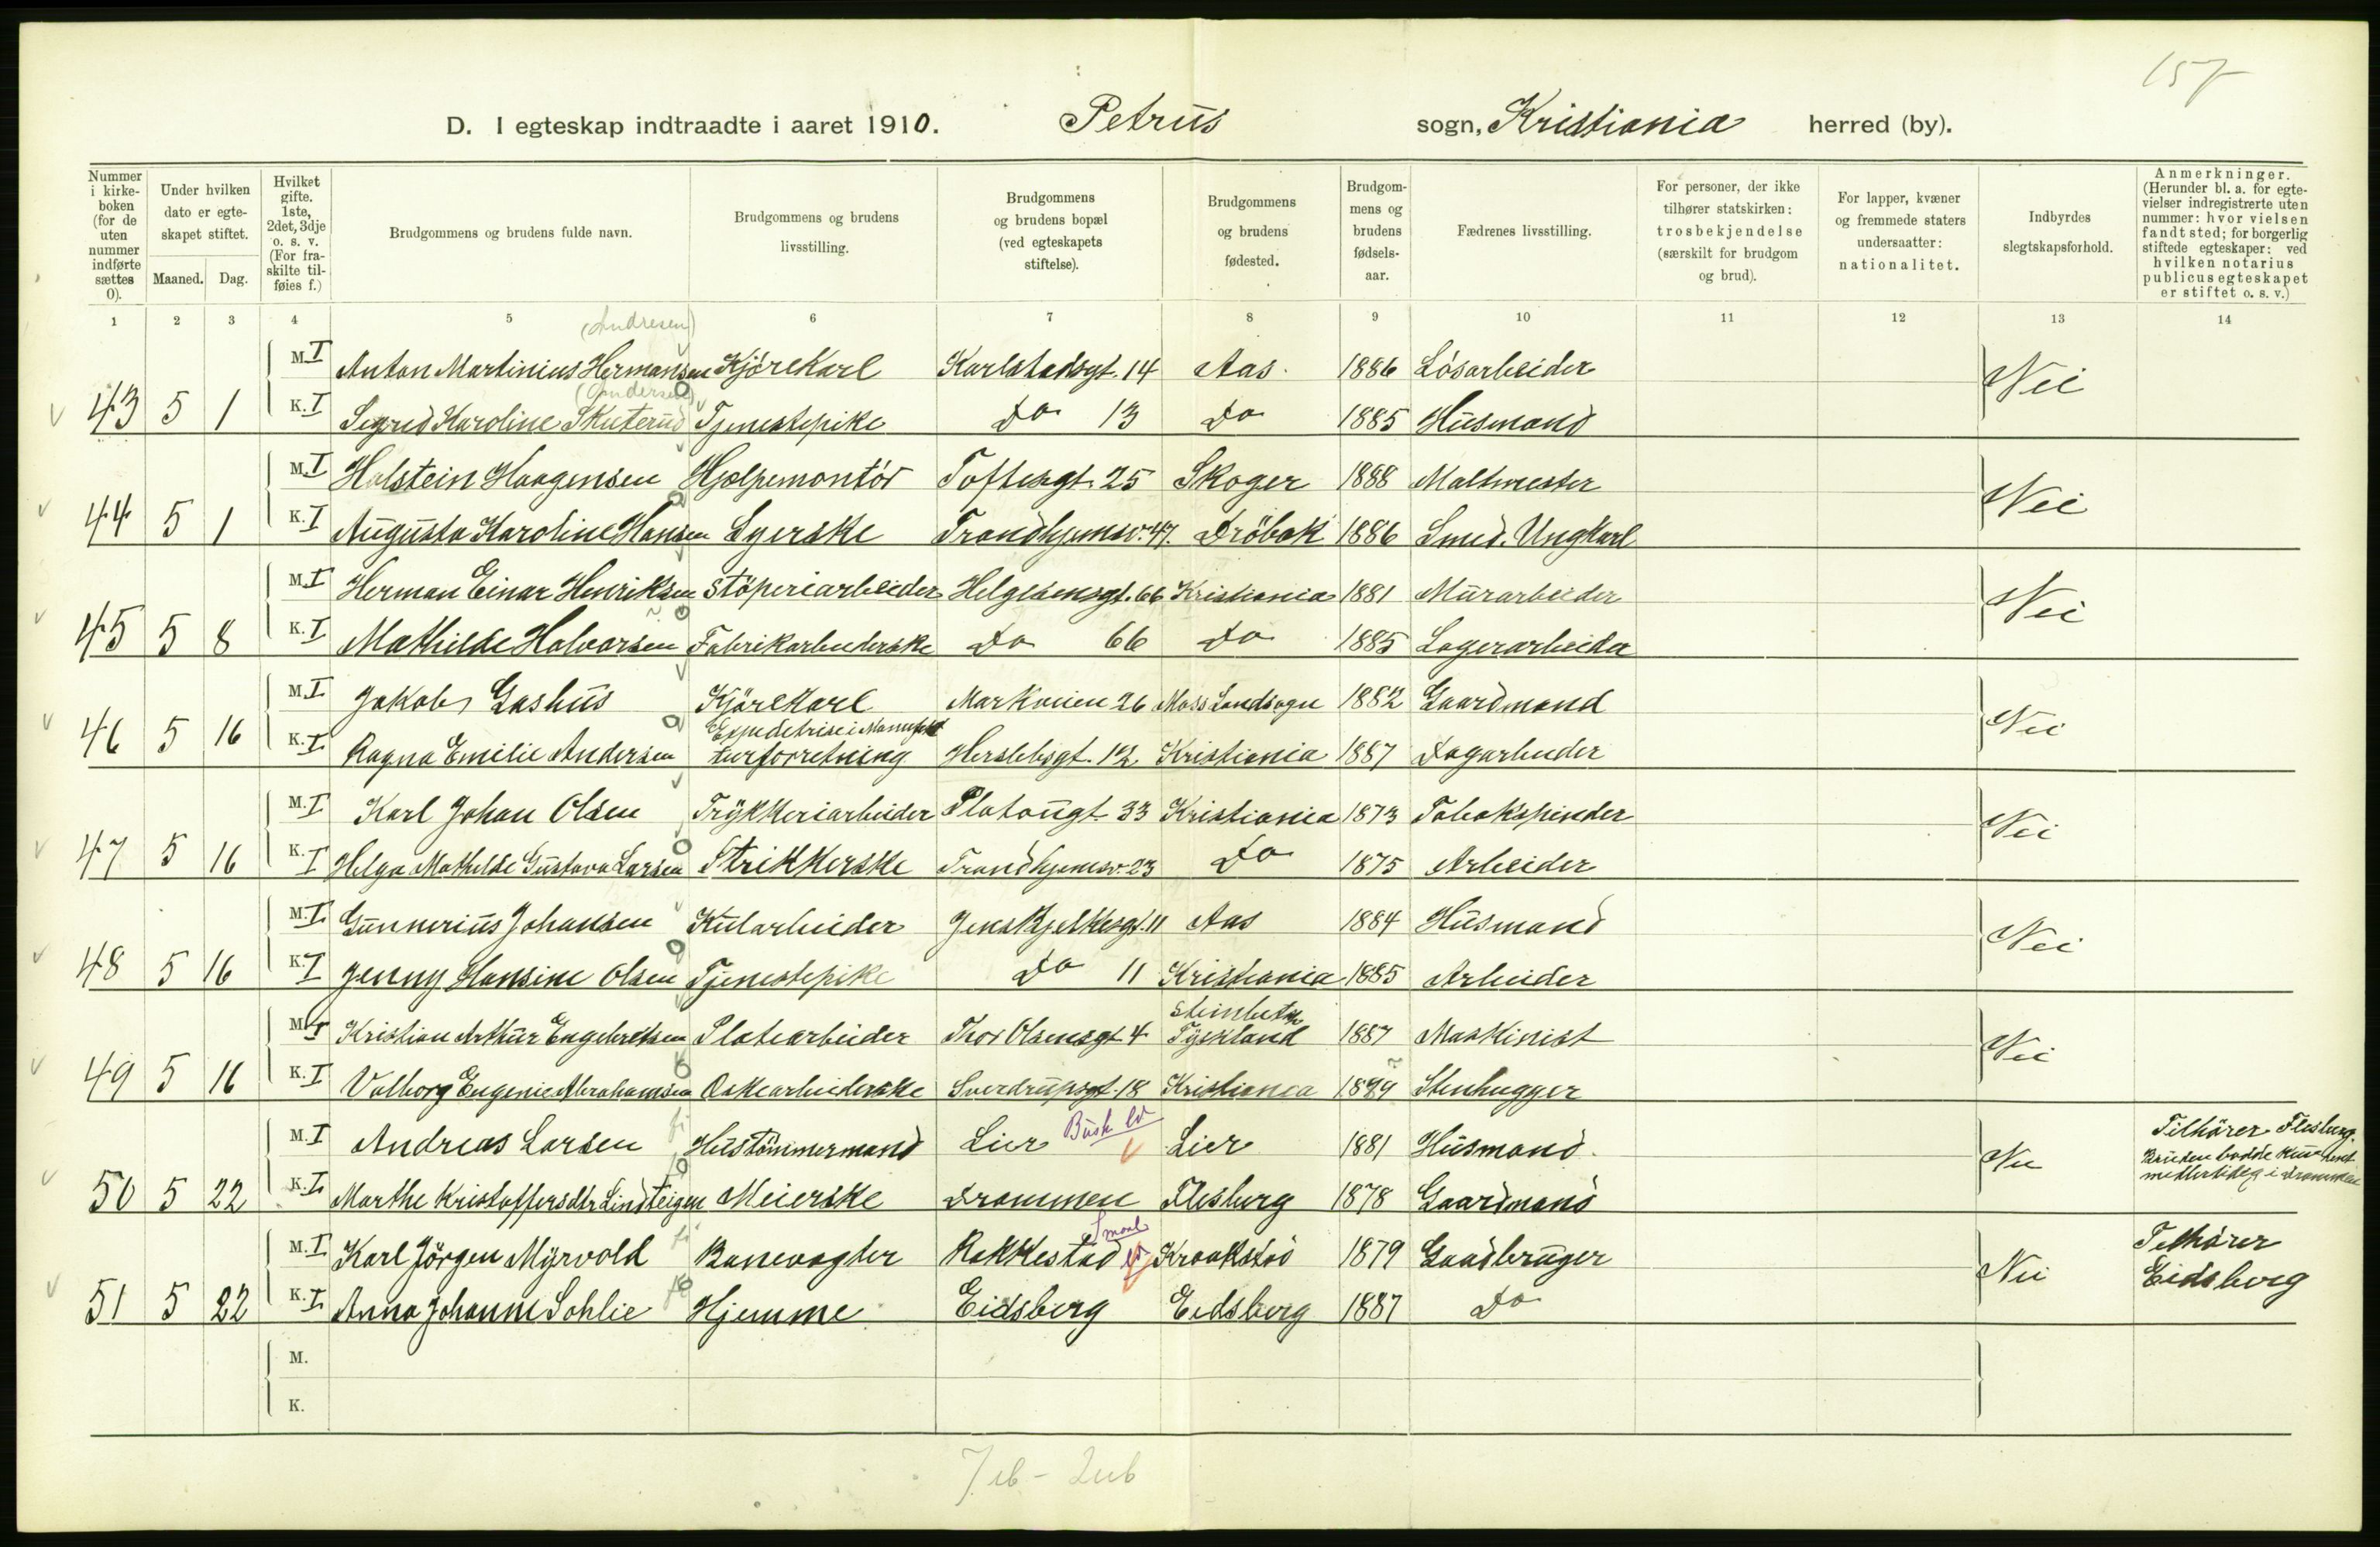 157
D. I egteskap indtraadte i aaret 1910. Petrus sogn, Kristiania herred (by).
Nummer i kirkeboken (for de uten nummer indførte sættes 0).
Under hvilken dato er egteskapet stiftet.
Maaned. Dag.
Hvilket gifte. 1ste, 2det, 3dje o. s. v. (For fraskilte tilføies f.)
Brudgommens og brudens fulde navn.
Brudgommens og brudens livsstilling.
Brudgommens og brudens bopæl (ved egteskapets stiftelse).
Brudgommens og brudens fødested.
Brudgommens og brudens fødselsaar.
Fædrenes livsstilling.
For personer, der ikke tilhører statskirken: trosbekjendelse (særskilt for brudgom og brud).
For lapper, kvæner og fremmede staters undersaatter: nationalitet.
Indbyrdes slegtskapsforhold.
Anmerkninger. (Herunder bl. a. for egtevielser indregistrerte uten nummer: hvor vielsen fandt sted; for borgerlig stiftede egteskaper: ved hvilken notarius publicus egteskapet er stiftet o. s. v.)
1 2 3 4 5 6 7 8 9 10 11 12 13 14
(Andresen)
M. I Anton Martinius Hermansen Kjörekarl Karlstadsgt. 14 Aas 1886 Lösarbeider Nei
(Andersen)
43 5 1 K. I Sigrid Karoline Skuterud Tjenestepike Do 13 Do 1885 Husmand
M. I Halstein Haagensen Hjælpemontör Toftesgt. 25 Skoger 1888 Maltmester Nei
44 5 1 K. I Augusta Karoline Hansen Syerske Trondhjemsv. 47. Dröbak 1886 Smed. Ungkarl
M. I Herman Einar Henriksen Stöperiarbeider Helgesensgt. 66 Kristiania 1881 Murarbeider Nei
45 5 8 K. I Mathilde Halvorsen Fabrikarbeiderske Do 66 Do 1885 Lagerarbeider
M. I Jakob Gashus Kjörekarl Markveien 26 Moss Landsogn 1882 Gaardmand Nei
Expeditrise i Manufak
46 5 16 K. I Ragna Emilie Andersen turforretning Herslebsgt. 12 Kristiania 1887 Dagarbeider
M. I Karl Johan Olsen Trykkeriarbeider Platougt. 33 Kristiania 1873 Tobakspinder Nei
47 5 16 K. I Helga Mathilde Gustava Larsen Strikkerske Trondhjemsv. 23 Do 1875 Arbeider
M. I Gunnerius Johansen Kularbeider Jens Bjelkesgt. 11 Aas 1884 Husmand Nei
48 5 16 K. I Jenny Hansine Olsen Tjenestepike Do 11 Kristiania 1885 Arbeider
M. I Kristian Arthur Engebretsen Platearbeider Thor Olsensgt 4 Tyskland 1887 Maskinist Nei
49 5 16 K. I Valborg Eugenie Abrahamsen Æskearbeiderske Sverdrupsgt. 18 Kristiania Stenhugger
M. I Andreas Larsen Hustömmermand Lier Busk Lier 1881 Husmand. Nei Tilhörer Flesberg.
Bruden bodde kun
midlertidig i Drammen
50 5 22 K. I Marthe Kristoffersdtr Lindteigen Meierske Drammen Flesberg 1878 Gaardmand
Smaal
M. I Karl Jörgen Myrvold Banevagter Rakkestad Kraakstad 1879 Gaardbruger Nei Tilhörer
Eidsberg
51 5 22 K. I Anna Johanne Sohlie Hjemme Eidsberg Eidsberg 1887 Do
M.
K.